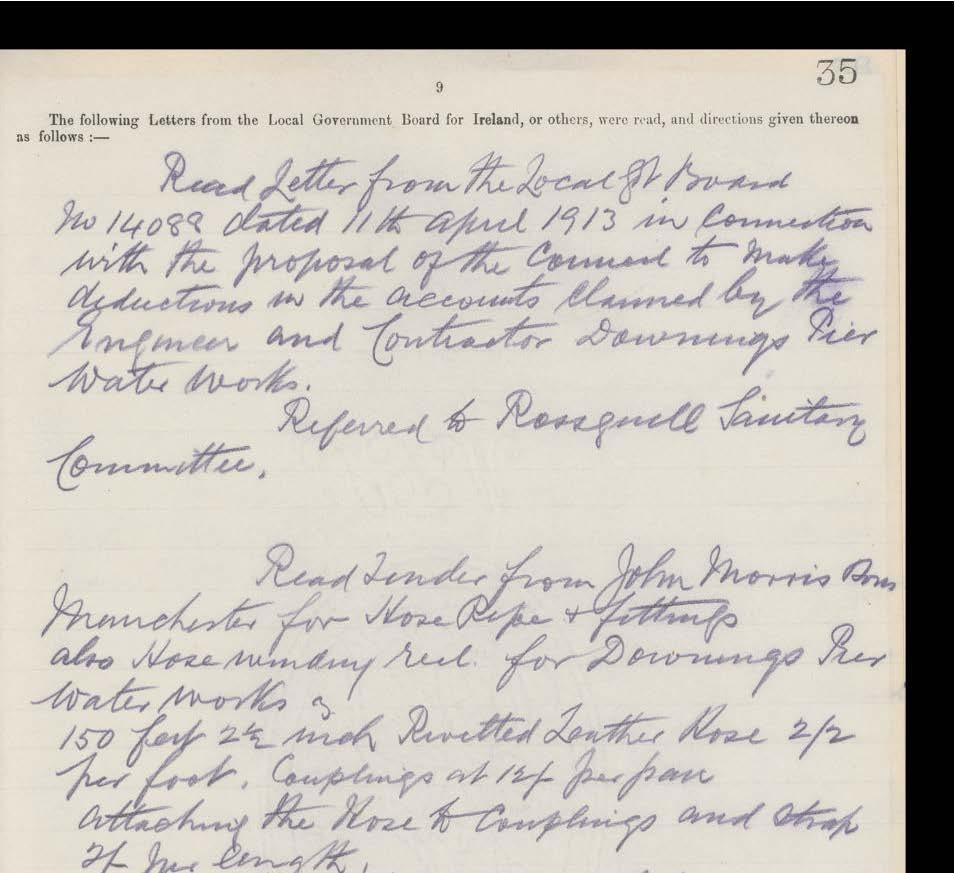 35
9
The following Letters from the Local Government Board for Ireland, or others, were read, and directions given thereon
as follows :—
Read Letter from the Local Gt Board
No 14088 dated 11th April 1913 in Connection
with the proposal of the Council to Make
deductions in the accounts Claimed by the
Engineer and Contractor Downings Pier
Water Works.
Referred to Rossguill Sanitary
Committee.
Read Tender from John Morris Sons
Manchester for Hose Pipe & fittings
also Hose winding reel. for Downings Pier
Water Works
150 feet 2½ inch Rivetted Leather Hose 2/2
per foot. Couplings at 12/- per pair
attaching the Hose to Couplings and strap
2/- per length.